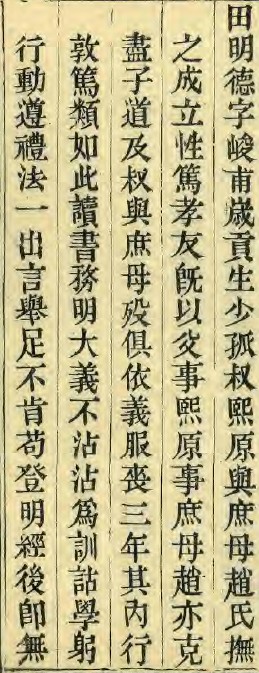 田明德字峻甫歲貢生少孤叔熙原與庶母趙氏撫
之成立性篤孝友旣以父事熙原事庶母趙亦克
盡子道及叔與庶母殁俱依義服喪三年其內行
敦篤類如此讀書務明大義不沾沾爲訓詁學躬
行動遵禮法一出言舉足不肯苟登明經後卽無